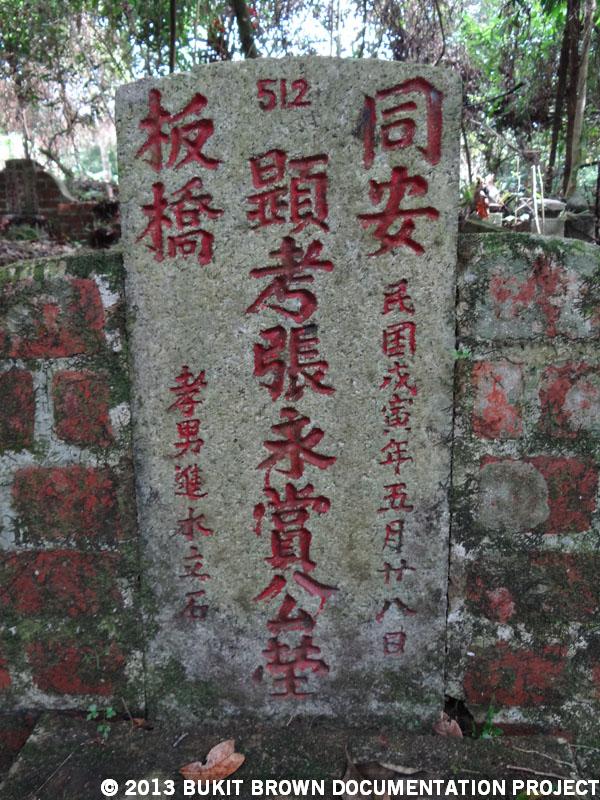 512
同安
民国戊寅年五月廿八日
顕考張永賞公塋
板橋
孝男進水立石
© 2013 BUKIT BROWN DOCUMENTATION PROJECT